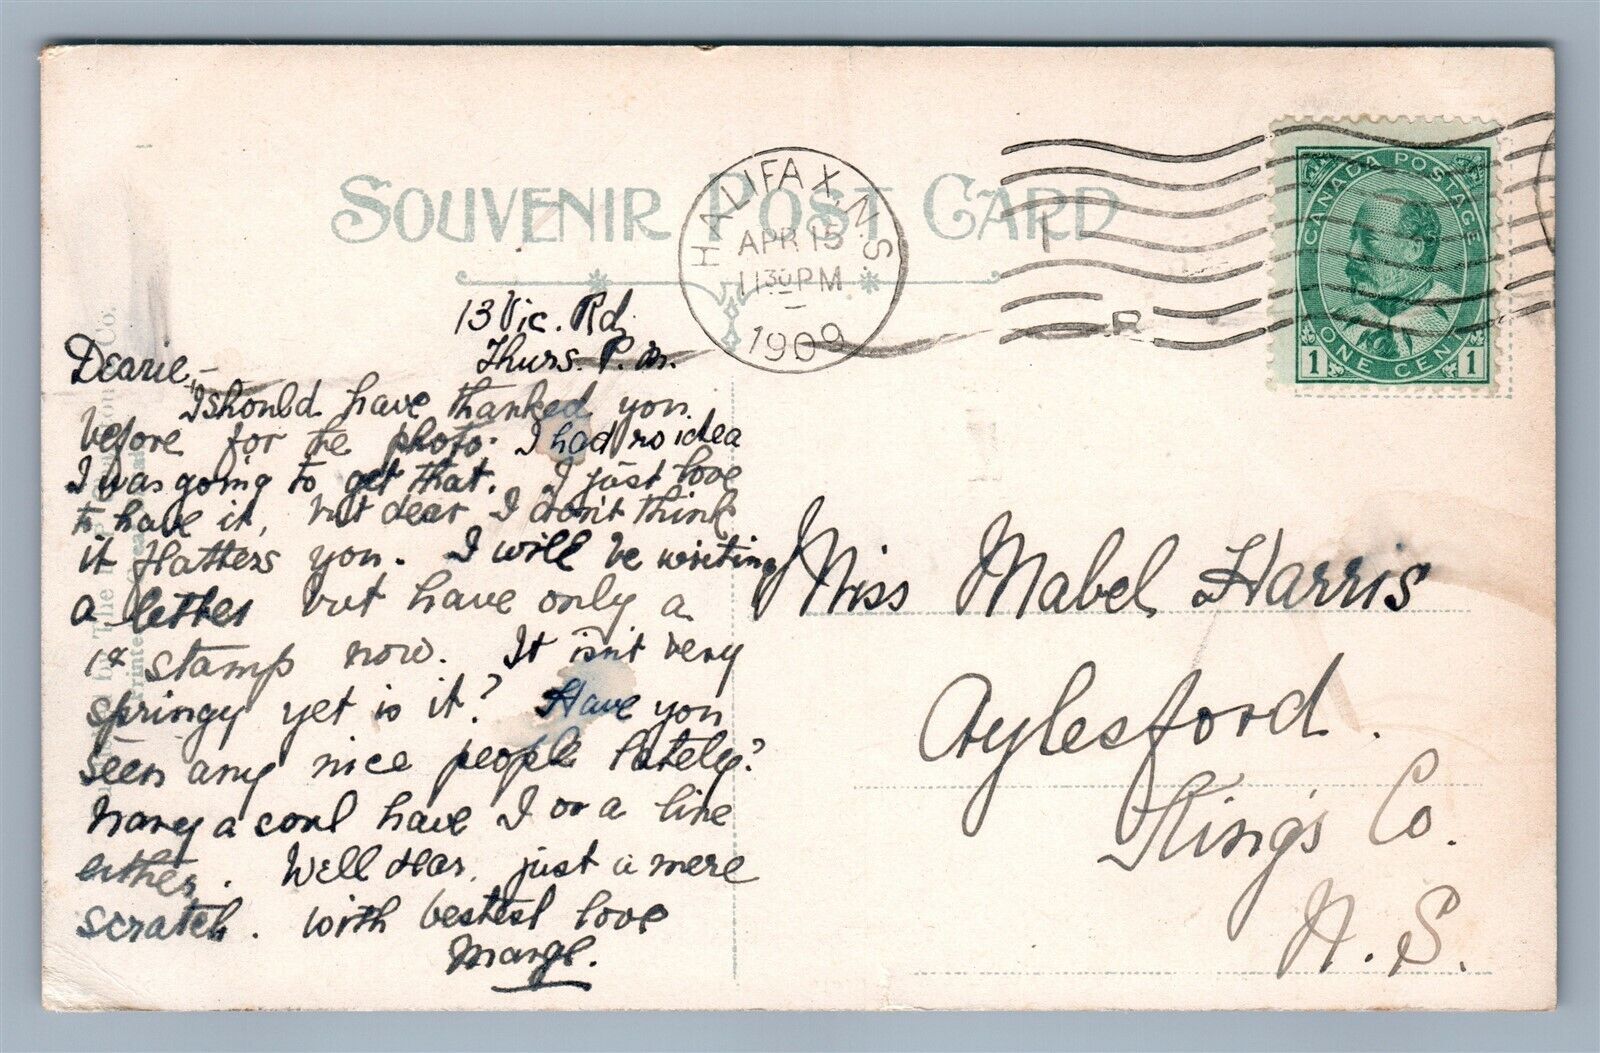 SOUVENIR POST CARD
HALIFAX, N.S.
APR 15
11 30 PM
1909
CANADA POSTAGE
1 ONE CENT 1
13 Vic. Rd.
Thurs. P. M.
Dearie,-
I should have thanked you
before for the photo. I had no idea
I was going to get that. I just love
to have it, but dear I don't think
it flatters you. I will be writing
a letter but have only a
1¢ stamp now. It isn't very
springy yet is it? Have you
seen any nice people lately?
Nary a soul have I or a line
either. Well dear, just a mere
scratch. With bestest love
Marge.
Miss Mabel Harris
Aylesford.
King's Co.
N. S.